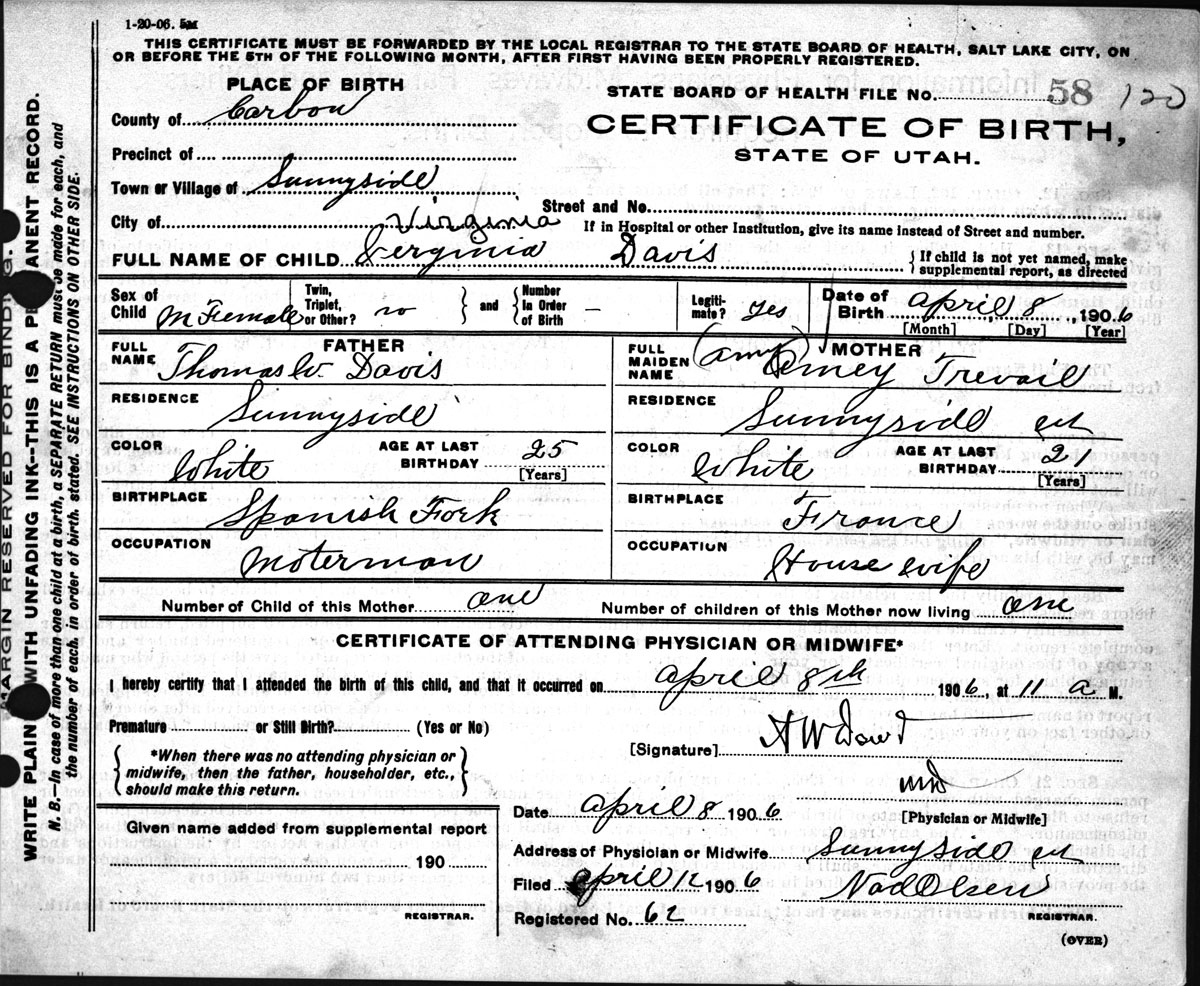 1-20-06. 5M
THIS CERTIFICATE MUST BE FORWARDED BY THE LOCAL REGISTRAR TO THE STATE BOARD OF HEALTH, SALT LAKE CITY, ON
OR BEFORE THE 5TH OF THE FOLLOWING MONTH, AFTER FIRST HAVING BEEN PROPERLY REGISTERED.
PLACE OF BIRTH
County of Carbon
Precinct of
Town or Village of Sunnyside
City of
STATE BOARD OF HEALTH FILE NO. 58 120
CERTIFICATE OF BIRTH,
STATE OF UTAH.
Street and No.
If in Hospital or other Institution, give its name instead of Street and number.
Virginia
FULL NAME OF CHILD Verginia Davis
{If child is not yet named, make
supplemental report, as directed
Sex of Child M Female
Twin, Triplet, or Other? no } and { Number in Order of Birth –
Legitimate? yes
Date of Birth April 8, 1906
[Month] [Day] [Year]
FATHER
FULL NAME Thomas W. Davis
RESIDENCE Sunnyside
COLOR White AGE AT LAST BIRTHDAY 25
[Years]
BIRTHPLACE Spanish Fork
OCCUPATION Moterman
MOTHER
FULL MAIDEN NAME (Amy) Emey Trevail
RESIDENCE Sunnyside Ut
COLOR White AGE AT LAST BIRTHDAY 21
[Years]
BIRTHPLACE France
OCCUPATION House wife
Number of Child of this Mother one Number of children of this Mother now living one
CERTIFICATE OF ATTENDING PHYSICIAN OR MIDWIFE*
I hereby certify that I attended the birth of this child, and that it occurred on April 8th 1906, at 11 a M.
Premature or Still Birth? (Yes or No)
{*When there was no attending physician or
midwife, then the father, householder, etc.,
should make this return.}
[Signature] A W Dowd
MD
[Physician or Midwife]
Given name added from supplemental report
190
REGISTRAR.
Date April 8 1906
Address of Physician or Midwife Sunnyside Ut
Filed April 12 1906 Nod Olsen
REGISTRAR.
Registered No. 62
(OVER)
MARGIN RESERVED FOR BINDING.
WRITE PLAINLY WITH UNFADING INK--THIS IS A PERMANENT RECORD.
N. B.—In case of more than one child at a birth, a SEPARATE RETURN must be made for each, and
the number of each, in order of birth, stated. SEE INSTRUCTIONS ON OTHER SIDE.